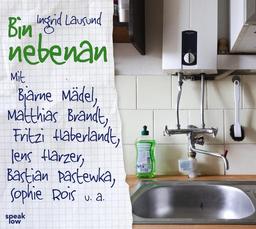 Ingrid Lausund
Bin
nebenan
Mit
Bjarne Mädel,
Matthias Brandt,
Fritzi Haberlandt,
Jens Harzer,
Bastian Pastewka,
Sophie Rois u. a.
speak
low